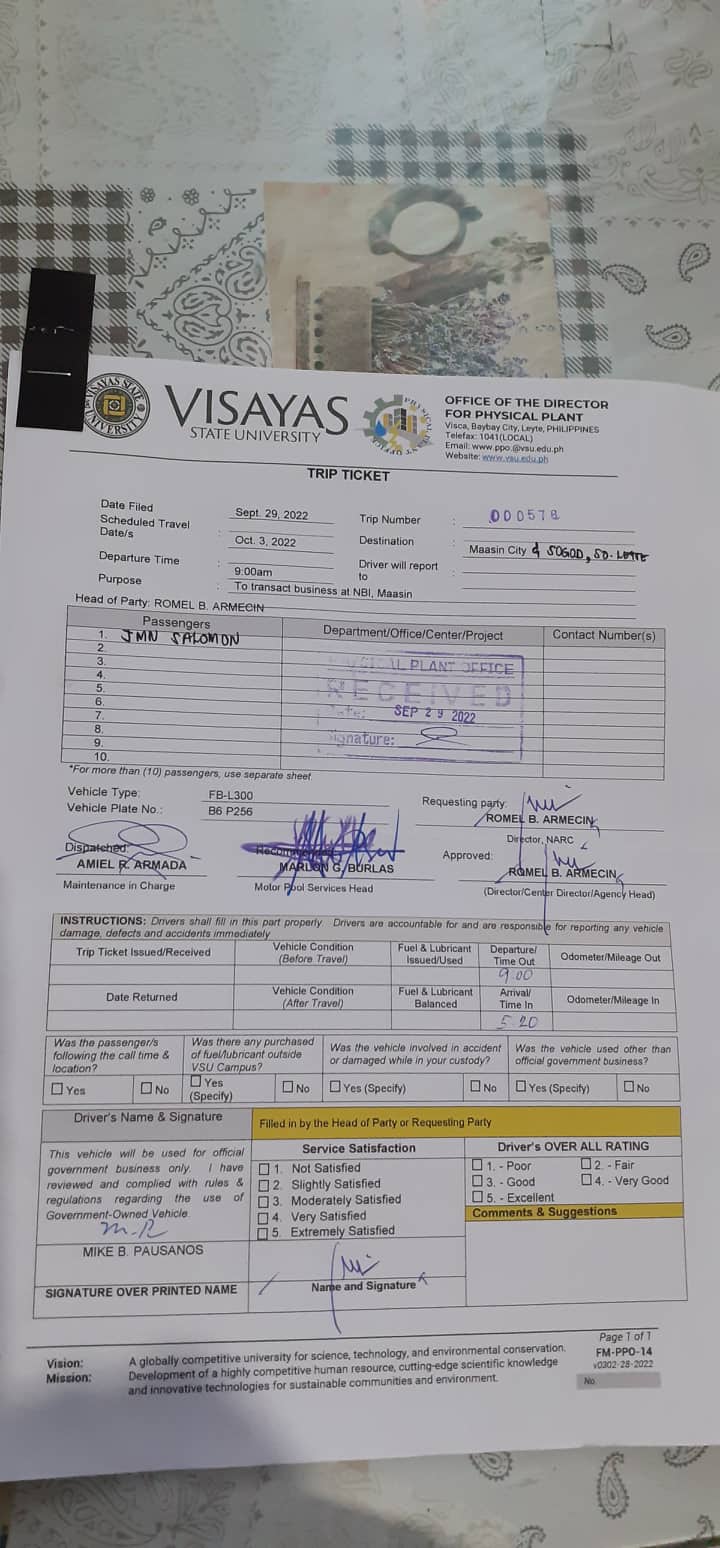 VISAYAS STATE UNIVERSITY
VISAYAS
STATE UNIVERSITY
PHYSICAL PLANT OFFICE
OFFICE OF THE DIRECTOR
FOR PHYSICAL PLANT
Visca, Baybay City, Leyte, PHILIPPINES
Telefax: 1041(LOCAL)
Email: www.ppo.@vsu.edu.ph
Website: www.vsu.edu.ph
TRIP TICKET
Date Filed : Sept. 29, 2022 Trip Number : 000578
Scheduled Travel Date/s : Oct. 3, 2022 Destination : Maasin City & SOGOD, SO. LEYTE
Departure Time : 9:00am Driver will report to :
Purpose : To transact business at NBI, Maasin
Head of Party: ROMEL B. ARMECIN
Passengers Department/Office/Center/Project Contact Number(s)
1. JMN SALOMON
2.
3.
4.
5.
6.
7.
8.
9.
10.
PHYSICAL PLANT OFFICE
RECEIVED
Date: SEP 29 2022
Signature:
*For more than (10) passengers, use separate sheet
Vehicle Type: FB-L300
Vehicle Plate No.: B6 P256
Requesting party:
ROMEL B. ARMECIN
Director, NARC
Dispatched:
AMIEL R. ARMADA
Maintenance in Charge
MARLON G. BURLAS
Motor Pool Services Head
Approved:
ROMEL B. ARMECIN
(Director/Center Director/Agency Head)
INSTRUCTIONS: Drivers shall fill in this part properly. Drivers are accountable for and are responsible for reporting any vehicle
damage, defects and accidents immediately
Trip Ticket Issued/Received Vehicle Condition (Before Travel) Fuel & Lubricant Issued/Used Departure/ Time Out Odometer/Mileage Out
9:00
Date Returned Vehicle Condition (After Travel) Fuel & Lubricant Balanced Arrival/ Time In Odometer/Mileage In
5:20
Was the passenger/s following the call time & location?
Was there any purchased of fuel/lubricant outside VSU Campus?
Was the vehicle involved in accident or damaged while in your custody?
Was the vehicle used other than official government business?
Yes No Yes (Specify) No Yes (Specify) No Yes (Specify) No
Driver's Name & Signature
Filled in by the Head of Party or Requesting Party
This vehicle will be used for official
government business only. I have
reviewed and complied with rules &
regulations regarding the use of
Government-Owned Vehicle.
MIKE B. PAUSANOS
SIGNATURE OVER PRINTED NAME
Service Satisfaction
1. Not Satisfied
2. Slightly Satisfied
3. Moderately Satisfied
4. Very Satisfied
5. Extremely Satisfied
Name and Signature
Driver's OVER ALL RATING
1. - Poor 2. - Fair
3. - Good 4. - Very Good
5. - Excellent
Comments & Suggestions
Vision: A globally competitive university for science, technology, and environmental conservation.
Mission: Development of a highly competitive human resource, cutting-edge scientific knowledge
and innovative technologies for sustainable communities and environment.
Page 1 of 1
FM-PPO-14
v0302-28-2022
No.